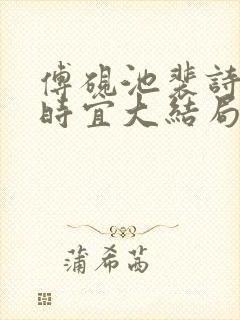 傅硯池裴詩
時宜大結局
蒲希茜